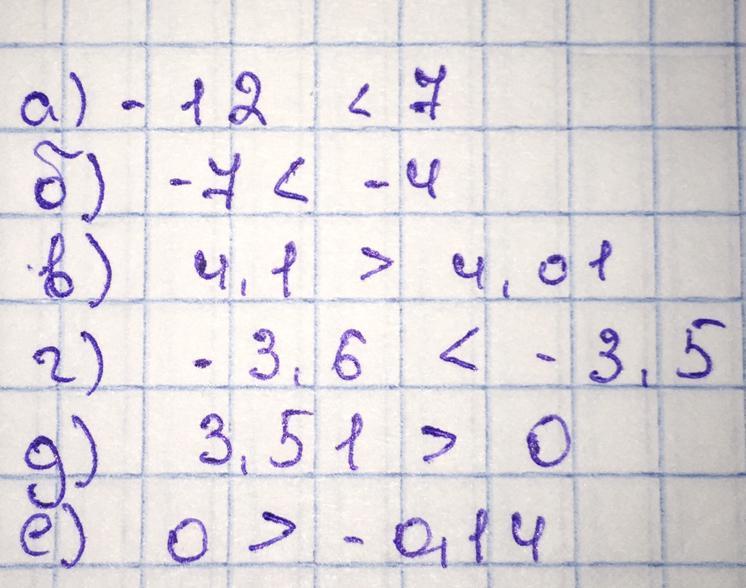 а) -12 < 7
б) -7 < -4
в) 4,1 > 4,01
г) -3,6 < -3,5
д) 3,51 > 0
е) 0 > -0,14